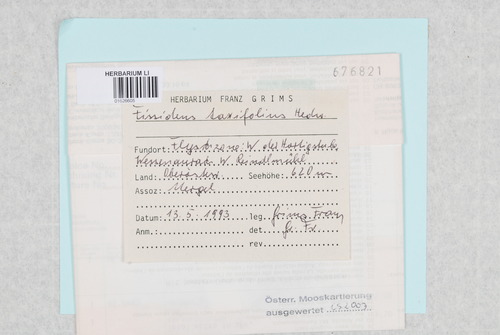 HERBARIUM LI
676821
HERBARIUM FRANZ GRIMS
Fissidens taxifolius Hedw
Fundort: Flyschzone W. der
W.
Land: Oberöstr. Seehöhe: 620 m
Assoz: Mergel
Datum: 13.5.1993 leg. Grims Franz
Anm.: det. Gr. Fr.
rev.
Österr. Mooskartierung
ausgewertet